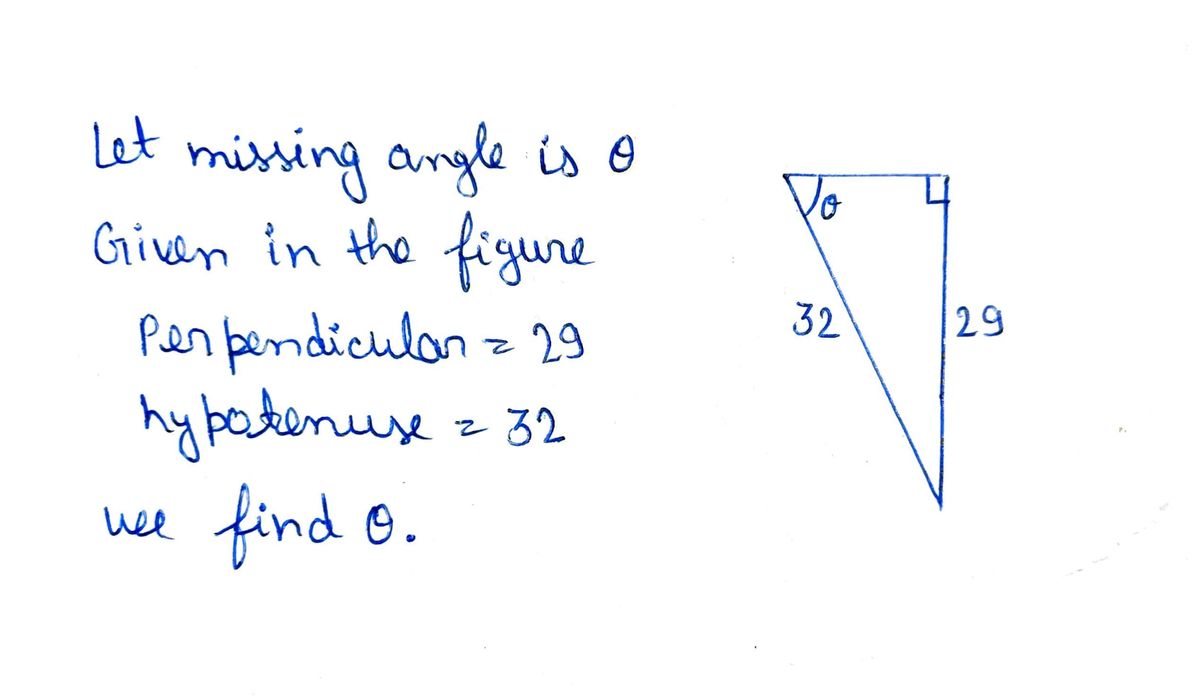 Let missing angle is θ
Given in the figure
Perpendicular = 29
hypotenuse = 32
wee find θ.
θ
32
29